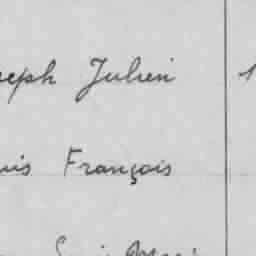 seph Julien 1
uis François